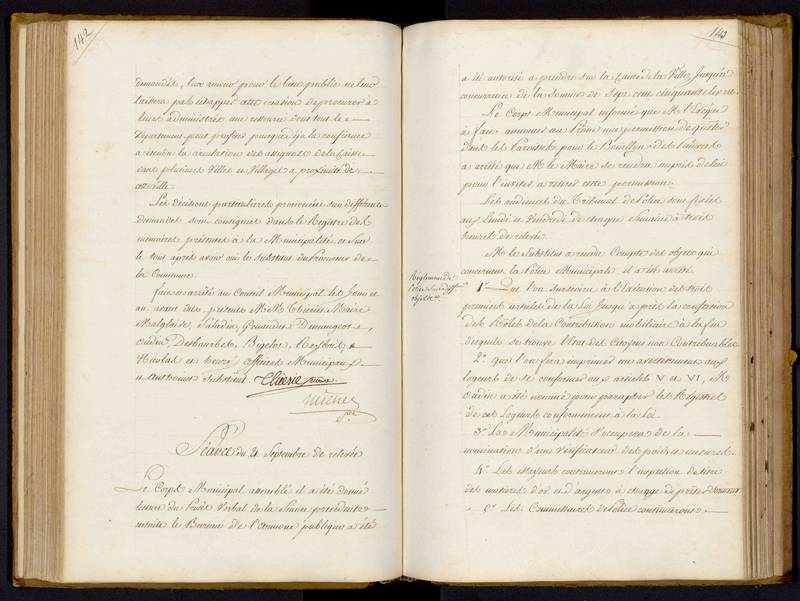 142
demandés, leur amour pour le bien public ne leur
laissera pas échapper cette occasion de procurer à
leurs administrés une ressource dont tout le
Département peut profiter puisque déjà la confiance
a étendu la circulation des assignats de la Caisse
dans plusieurs Villes et Villages à proximité de
cette ville.
Les décisions particulières prononcées sur différentes
demandes sont consignées dans le Registre des
mémoires présentés à la Municipalité, et sur
le tout après avoir oui le substitut du Procureur de
la Commune.
fait et arrêté au Conseil Municipal les Jour et
an avant dits, présents MM Thieriet Maire
Malglaive, Saladin,
Oudin, Desbourbes, Bigelot,
Nicolas et officiers Municipaux
et substitut.
Séance du 21 Septembre de relevée
Le Corps Municipal assemblé il a été donné
lecture du Procès Verbal de la Séance précédente
ensuite le Bureau de l'aumône publique a été
143
a été autorisé à prendre sur la Caisse de la Ville, Jusqu'à
concurrence de la Somme de Sept cent cinquante livres
Le Corps Municipal informé que M. l'Evêque
a fait annoncer au Prône une permission de quêter
dans les Paroisses pour le Bouillon des Pauvres
a arrêté que M. le Maire se rendra auprès de lui
pour l'inviter à retirer cette permission.
Les audiences du Tribunal de Police sont fixées
aux Lundi et Vendredi de chaque Semaine à trois
heures de relevée.
M. le Substitut a rendu Compte des objets qui
concernent la Police Municipale, il a été arrêté
Réglement de
Police sur diff.
objets &a
1° Que l'on sursoira à l'Exécution des trois
premiers articles de la Loi Jusqu'après la confection
des Rôles de la Contribution mobiliaire à la fin
desquels se trouve l'état des Citoyens non Contribuables
2.° que l'on fera imprimer un avertissement aux
logeurs de se conformer aux articles V et VI, M.
Oudin a été nommé pour parapher les Régistres
de ces Logeurs conformément à la Loi
3.° La Municipalité s'occupera de la
nomination d'un Vérificateur des poids et mesures.
4.° Les continueront l'inspection du titre
des matières d'or et d'argent,
5.° Les Commissaires de Police continueront